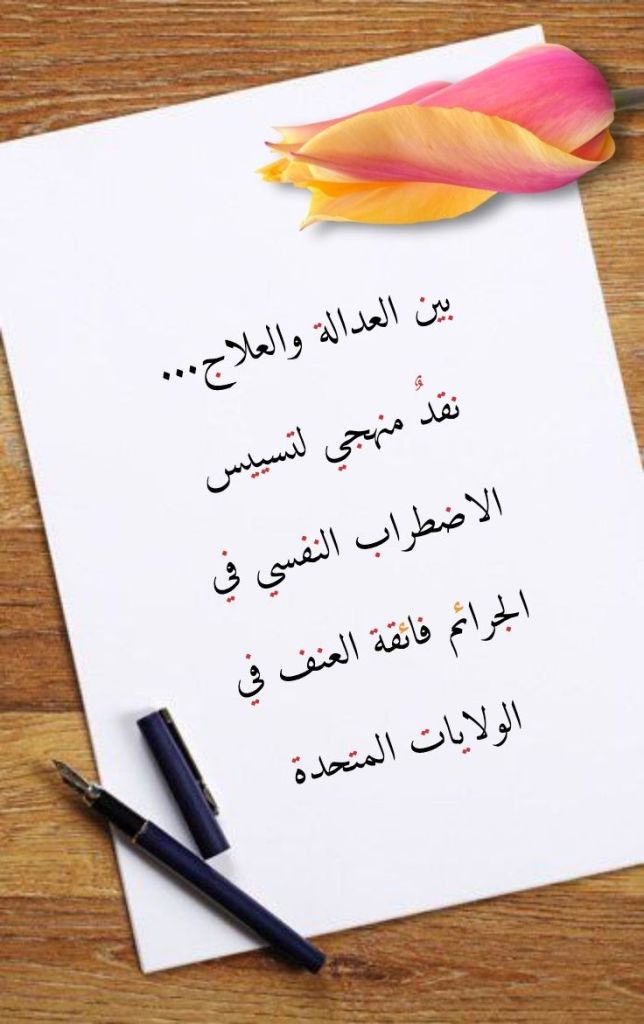 بين العدالة والعلاج...
نقدٌ منهجي لتسييس
الاضطراب النفسي في
الجرائم فائقة العنف في
الولايات المتحدة